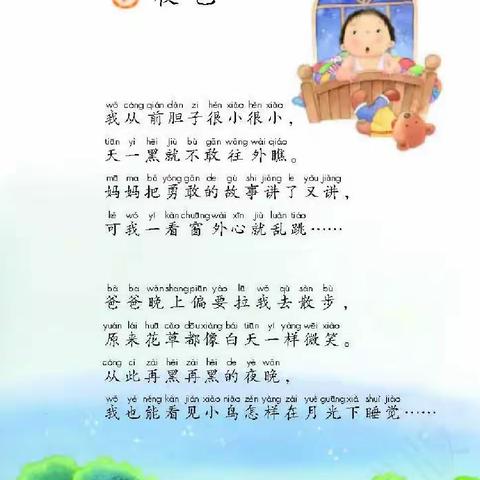 夜色
wǒ cóng qián dǎn zi hěn xiǎo hěn xiǎo
我从前胆子很小很小，
tiān yì hēi jiù bù gǎn wǎng wài qiáo
天一黑就不敢往外瞧。
mā ma bǎ yǒng gǎn de gù shi jiǎng le yòu jiǎng
妈妈把勇敢的故事讲了又讲，
kě wǒ yí kàn chuāng wài xīn jiù luàn tiào
可我一看窗外心就乱跳……
bà ba wǎn shang piān yào lā wǒ qù sàn bù
爸爸晚上偏要拉我去散步，
yuán lái huā cǎo dōu xiàng bái tiān yí yàng wēi xiào
原来花草都像白天一样微笑。
cóng cǐ zài hēi zài hēi de yè wǎn
从此再黑再黑的夜晚，
wǒ yě néng kàn jiàn xiǎo niǎo zěn yàng zài yuè guāng xià shuì jiào
我也能看见小鸟怎样在月光下睡觉……